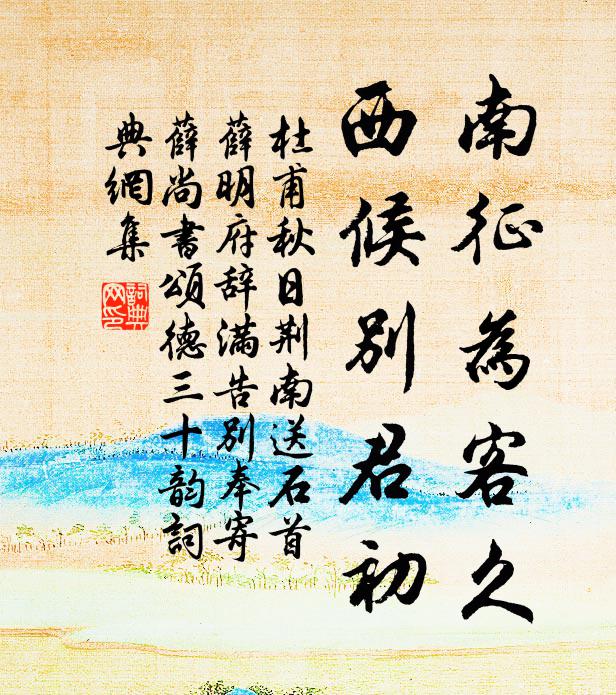 南征為客久
西候別君初
杜甫秋日荆南送石首
薛明府辞滿告別奉寄
薛尚書頌德三十韵詞
典網集
詞典
网印